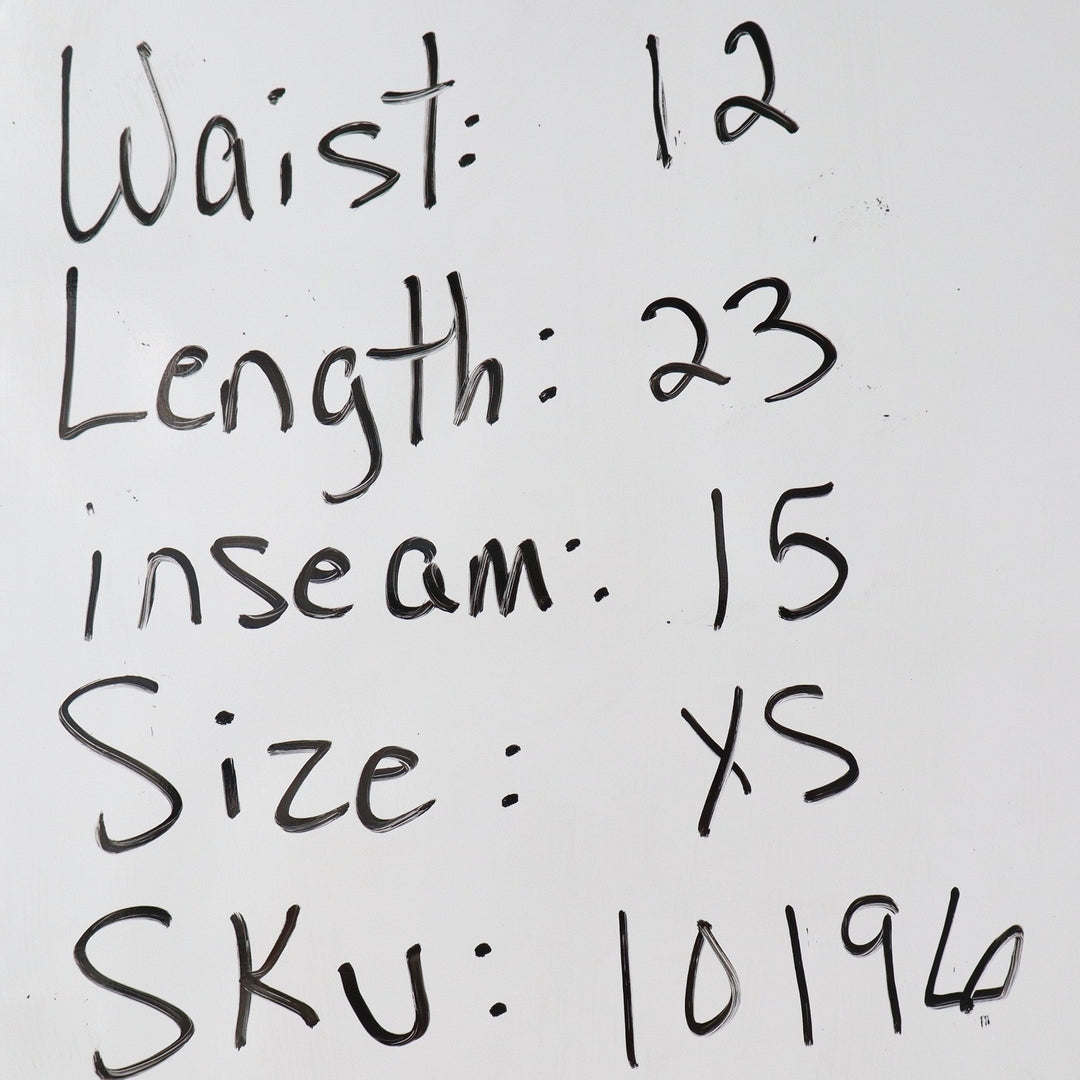 Waist: 12
Length: 23
inseam: 15
Size: XS
SKU: 10196